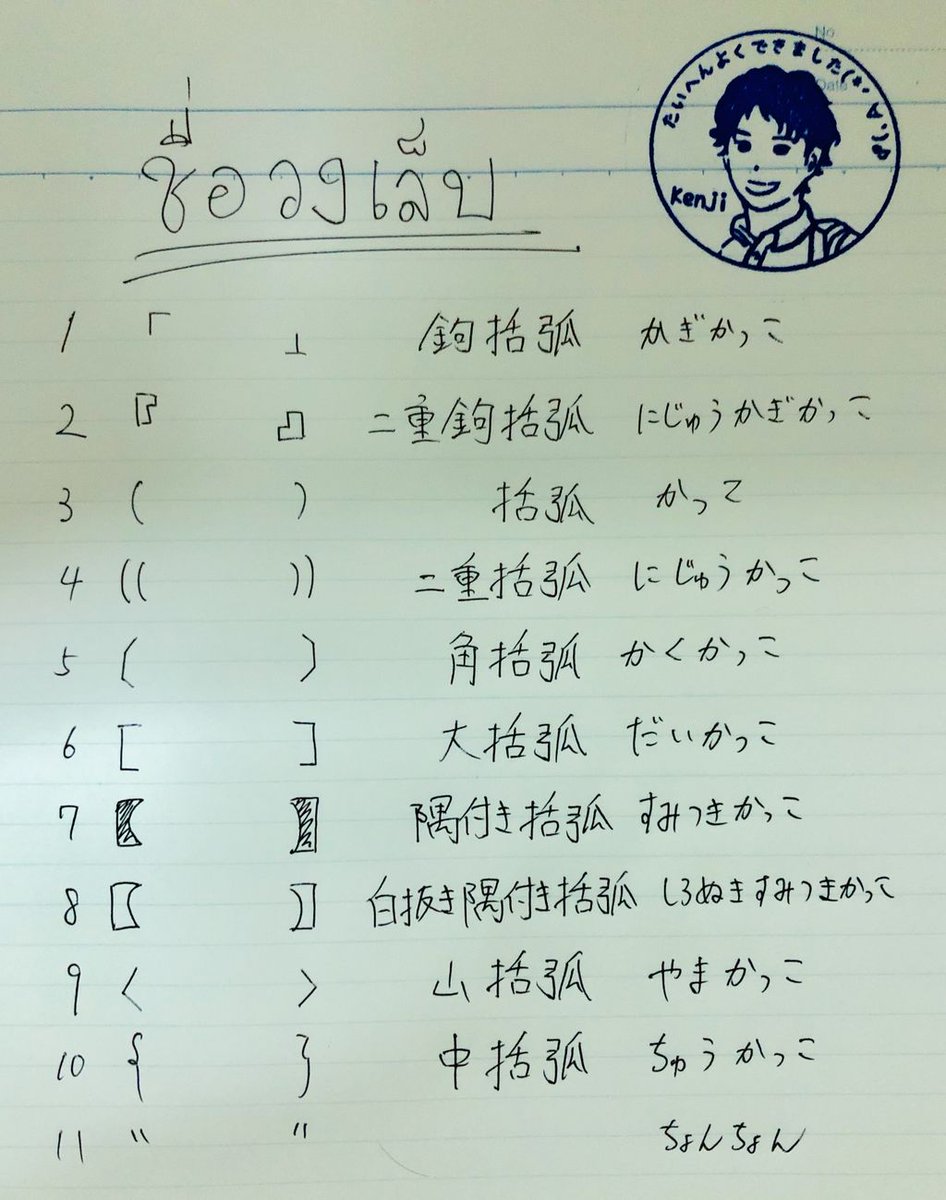 No
Date
たいへんよくできました
Kenji
ชื่อวงเล็บ
1 「 」 鉤括弧 かぎかっこ
2 『 』 二重鉤括弧 にじゅうかぎかっこ
3 ( ) 括弧 かって
4 (( )) 二重括弧 にじゅうかっこ
5 〔 〕 角括弧 かくかっこ
6 [ ] 大括弧 だいかっこ
7 【 】 隅付き括弧 すみつきかっこ
8 〖 〗 白抜き隅付き括弧 しろぬきすみつきかっこ
9 〈 〉 山括弧 やまかっこ
10 { } 中括弧 ちゅうかっこ
11 " " ちょんちょん